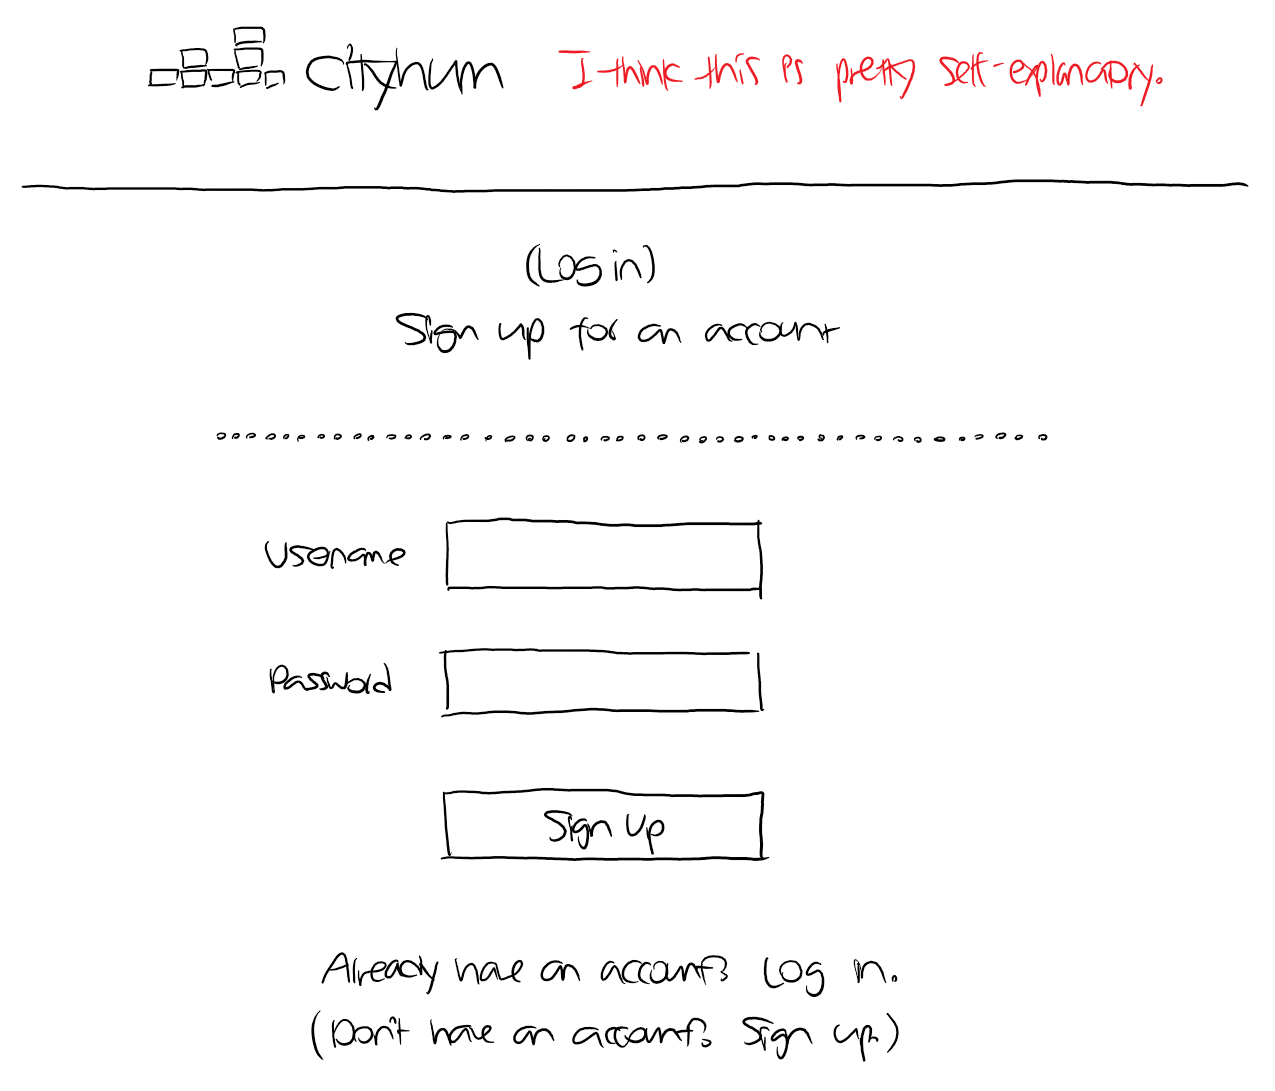 Cityhum I think this is pretty self-explanatory.
(Log in)
Sign up for an account
Username
Password
Sign Up
Already have an account? Log in.
(Don't have an account? Sign up.)